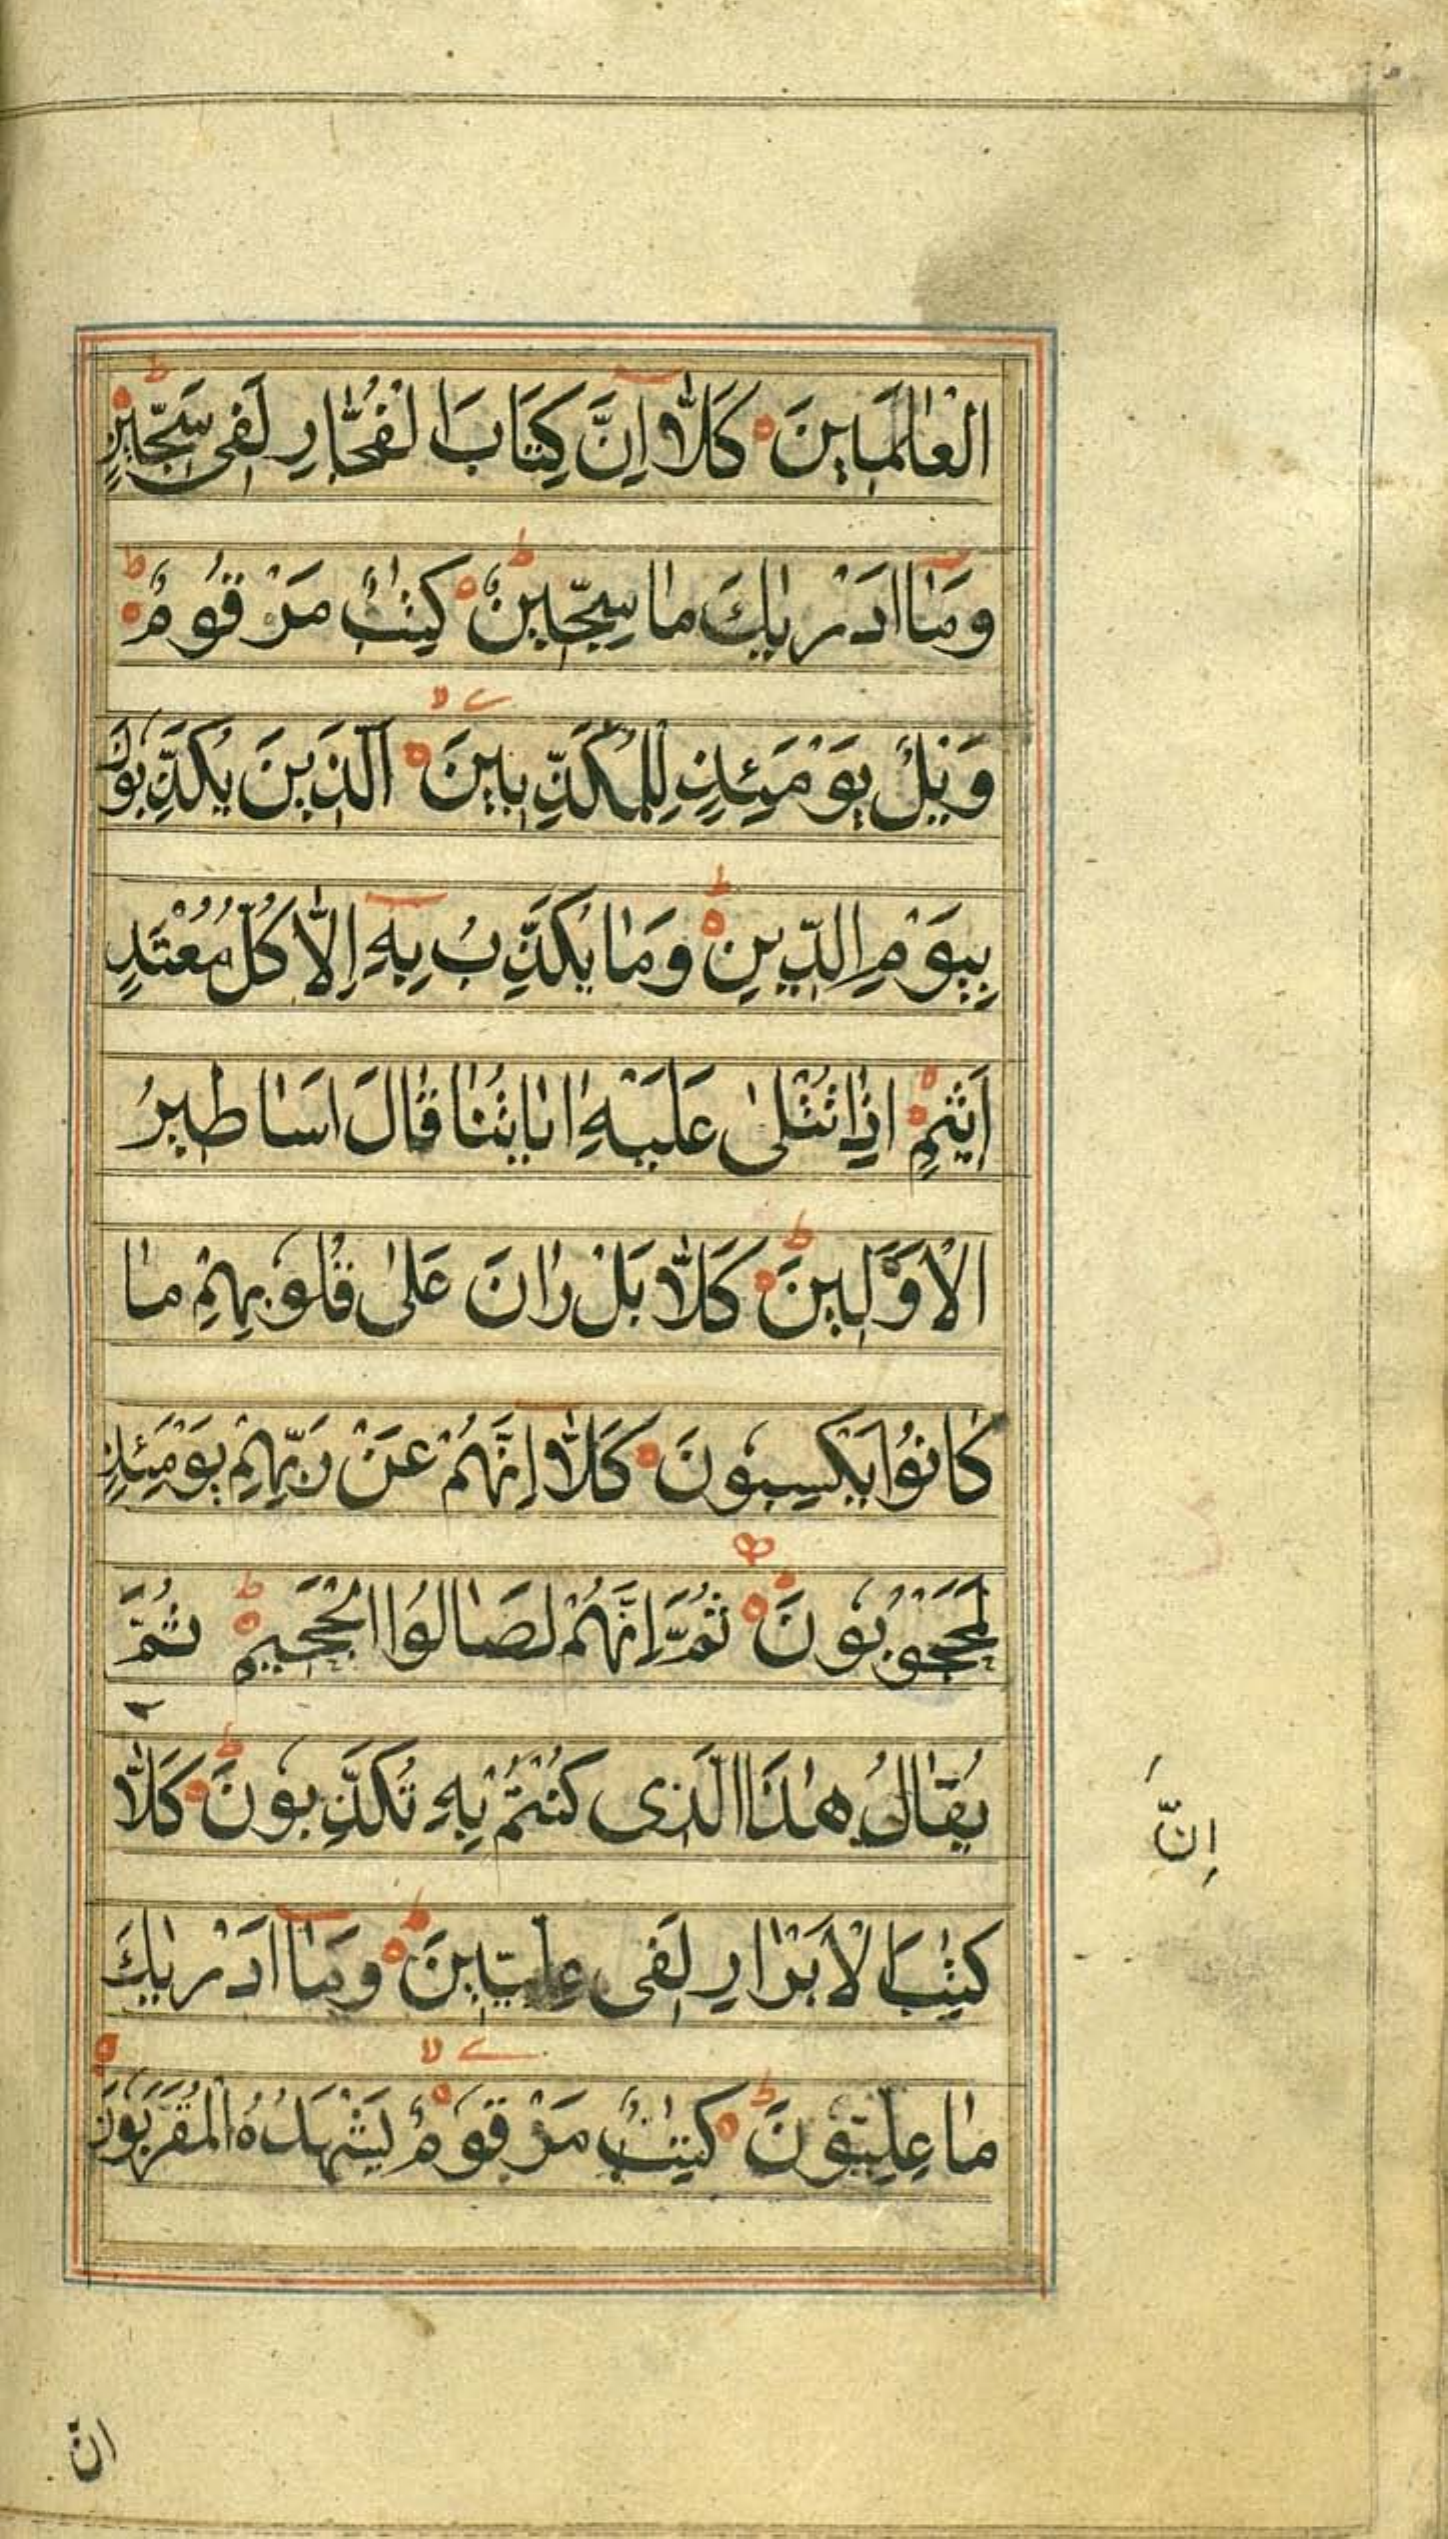 الْعَالَمَيِنَ كَلَّا اِنَّ كِتَابَ الْفُجَّارِ لَفى سَجّينٍ
وَمَا اَدْرٰيكَ مَا سِجّينٌ كِتٰبٌ مَرْقُومٌ
وَيْلٌ يَوْمَئِذٍ لِلْمُكَذِّبينَ اَلَّذينَ يُكَذِّبُونَ
بِيَوْمِ الدّينِ وَمَا يُكَذِّبُ بِهِ اِلَّا كُلُّ مُعْتَدٍ
اَثيمٍ اِذَا تُتْلىٰ عَلَيْهِ اٰيَاتُنَا قَالَ اَسَاطيرُ
الْاَوَّلينَ كَلَّا بَلْ رَانَ عَلىٰ قُلُوبِهِمْ مَا
كَانُوا يَكْسِبُونَ كَلَّا اِنَّهُمْ عَنْ رَبِّهِمْ يَوْمَئِذٍ
لَمَحْجُوبُونَ ثُمَّ اِنَّهُمْ لَصَالُوا الْجَحيمِ ثُمَّ
يُقَالُ هٰذَا الَّذى كُنْتُمْ بِهِ تُكَذِّبُونَ كَلَّا
اِنَّ
كِتٰبَ الْاَبْرَارِ لَفى عِلّيّينَ وَمَا اَدْرٰيكَ
مَا عِلِّيُّونَ كِتٰبٌ مَرْقُومٌ يَشْهَدُهُ الْمُقَرَّبُونَ
انّ